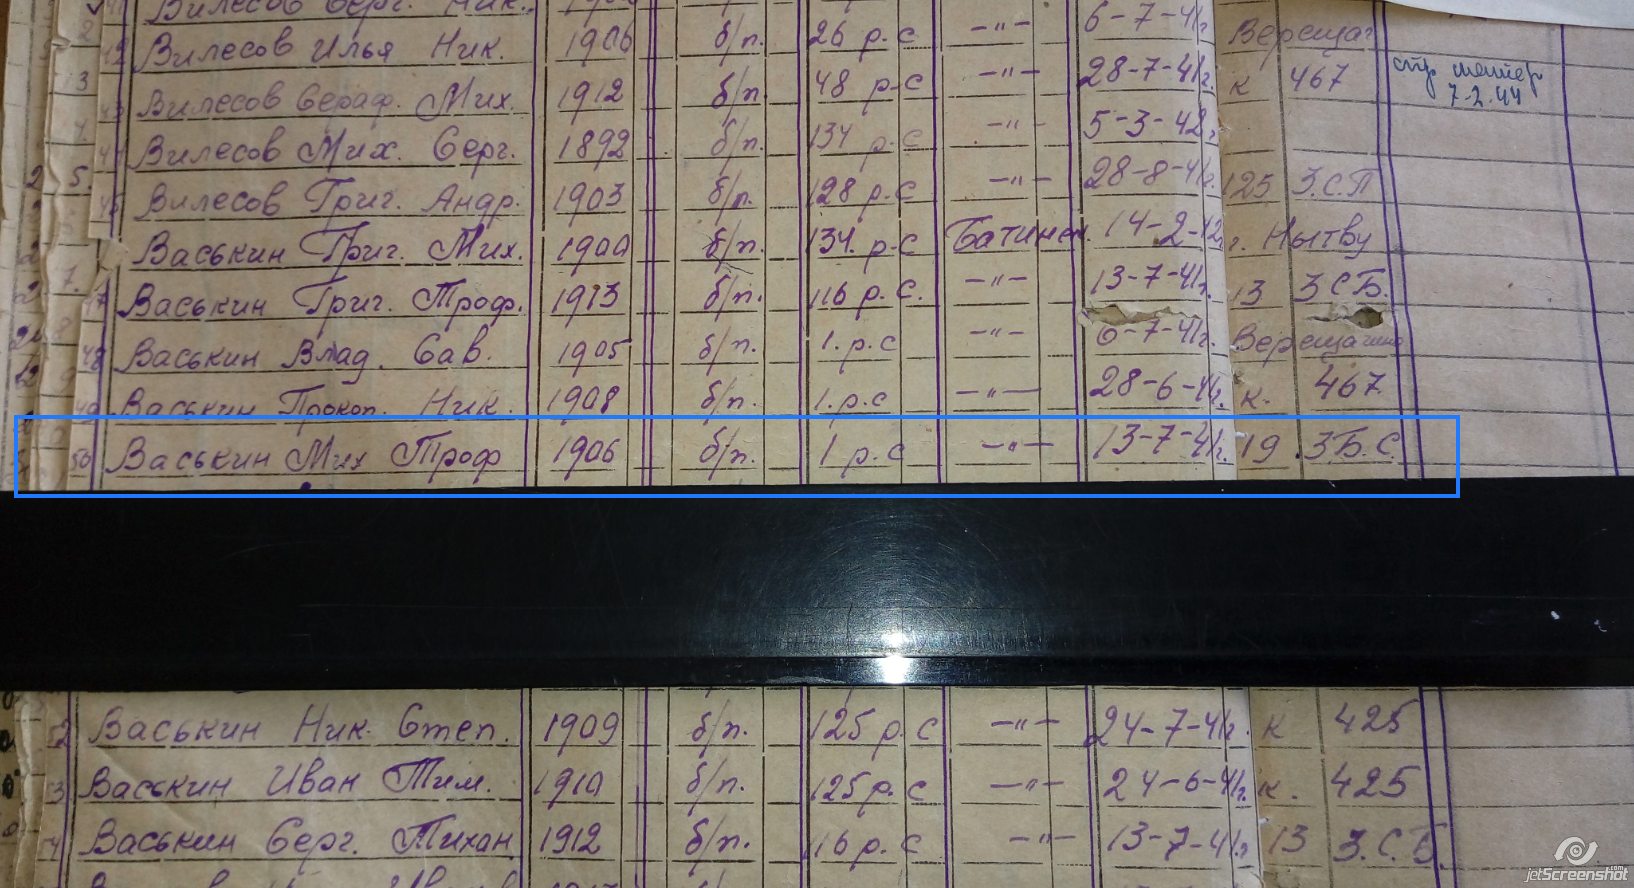 Вилесов Серг. Ник.
42 Вилесов Илья Ник. 1906 б/п. 26 р.с —"— 6-7-41г Верещаг
43 Вилесов Сераф. Мих. 1912 б/п. 48 р.с —"— 28-7-41г. к 467
7.2.44
44 Вилесов Мих. Серг. 1892 б/п. 134 р.с —"— 5-3-42г
45 Вилесов Григ. Андр. 1903 б/п. 128 р.с —"— 28-8-41г. 125 З.С.П
Васькин Григ. Мих. 1900 б/п. 134. р.с 14-2-42г. г. Нытву
47 Васькин Григ. Троф. 1913 б/п. 116 р.с. —"— 13-7-41г. 13 ЗСБ.
48 Васькин Влад. Сав. 1905 б/п. 1.р.с —"— 6-7-41г. Верещагино
49 Васькин Прокоп. Ник. 1908 б/п. 1.р.с —"— 28-6-41г. к. 467
50 Васькин Мих Троф 1906 б/п. 1 р.с —"— 13-7-41г. 19 .ЗБ.С.
52 Васькин Ник. Степ. 1909 б/п. 125 р.с —"— 24-7-41г. к 425
3 Васькин Иван Тим. 1910 б/п. 125 р.с —"— 24-6-41г. к. 425
4 Васькин Серг. Тихан 1912 б/п. 116 р.с —"— 13-7-41г 13 З.С.Б.
jetScreenshot.com